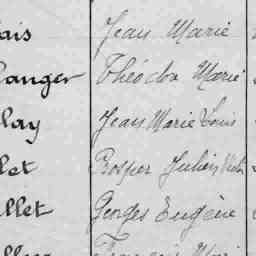 ais Jean Marie
langer Théodor Marie
lay Jean Marie Louis
let Prosper Julien Victor
llet Georges Eugène
François Marie